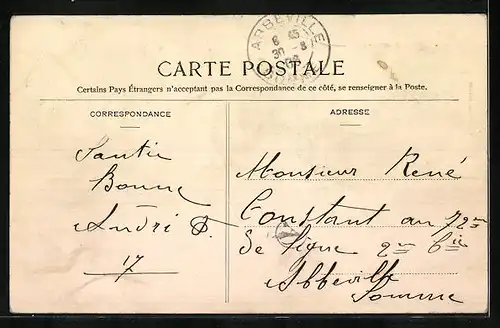 ABBEVILLE
CARTE POSTALE
Certains Pays Étrangers n'acceptant pas la Correspondance de ce côté, se renseigner à la Poste.
CORRESPONDANCE
Santie
Bonne
André
17
ADRESSE
Monsieur René
Constant au 72me
de ligne 2me Cie
Abbeville
Somme